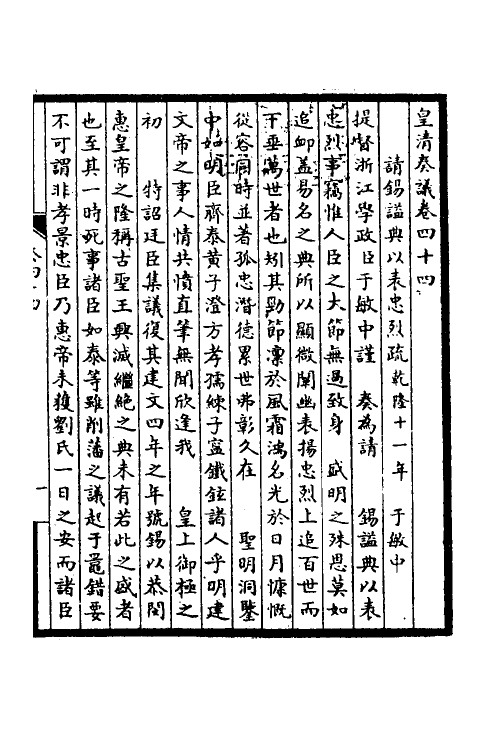 皇清奏議卷四十四
請錫謚典以表忠烈疏 乾隆十一年 于敏中
提督浙江學政臣于敏中謹 奏為請 錫謚典以表
忠烈事竊惟人臣之大節無過致身 盛明之殊恩莫如
追衈盖易名之典所以顯微闡幽表揚忠烈上追百世而
下垂萬世者也矧其勁節凛於風霜鴻名光於日月慷慨
從容同時並著孤忠潛德累世弗彰久在 聖明洞鑒
中如明臣齊泰黄子澄方孝孺練子寧鐵鉉諸人乎明建
文帝之事人情共憤直筆無聞欣逢我 皇上御極之
初 特詔廷臣集議復其建文四年之年號錫以恭閔
惠皇帝之隆稱古聖王興滅繼絶之典未有若此之盛者
也至其一時死事諸臣如泰等雖削藩之議起于鼂錯要
不可謂非孝景忠臣乃惠帝未獲劉氏一日之安而諸臣